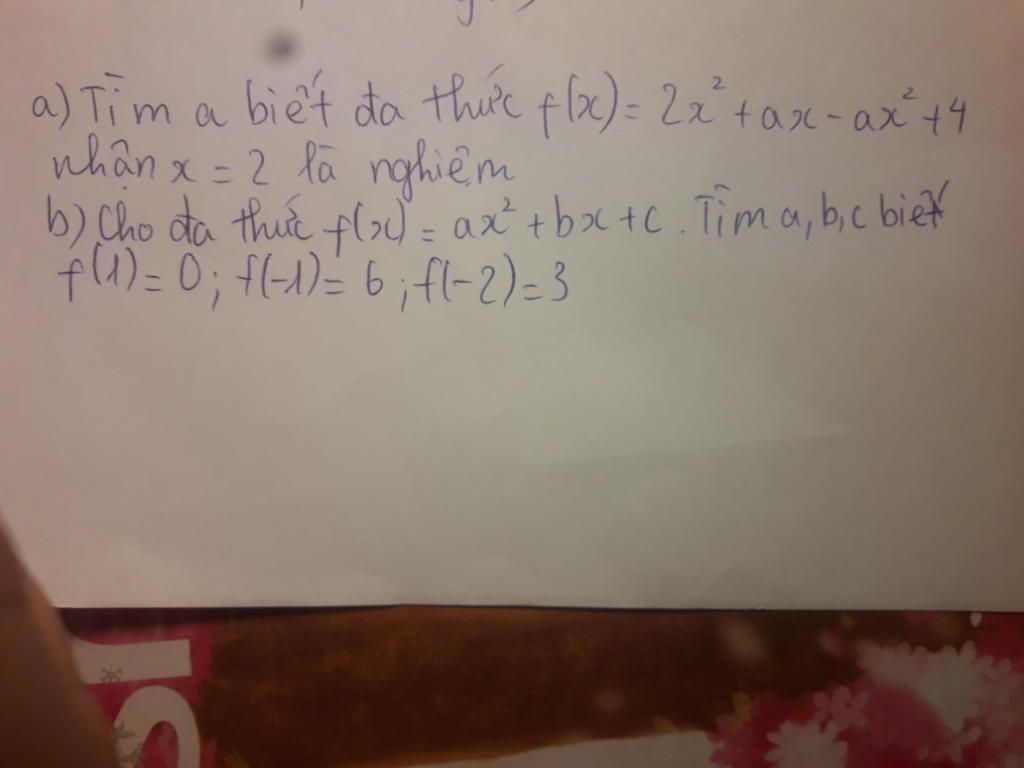 a) Tìm a biết đa thức f(x) = 2x² + ax - ax² + 4
nhận x = 2 là nghiệm
b) Cho đa thức f(x) = ax² + bx + c. Tìm a, b, c biết
f(1) = 0; f(-1) = 6; f(-2) = 3